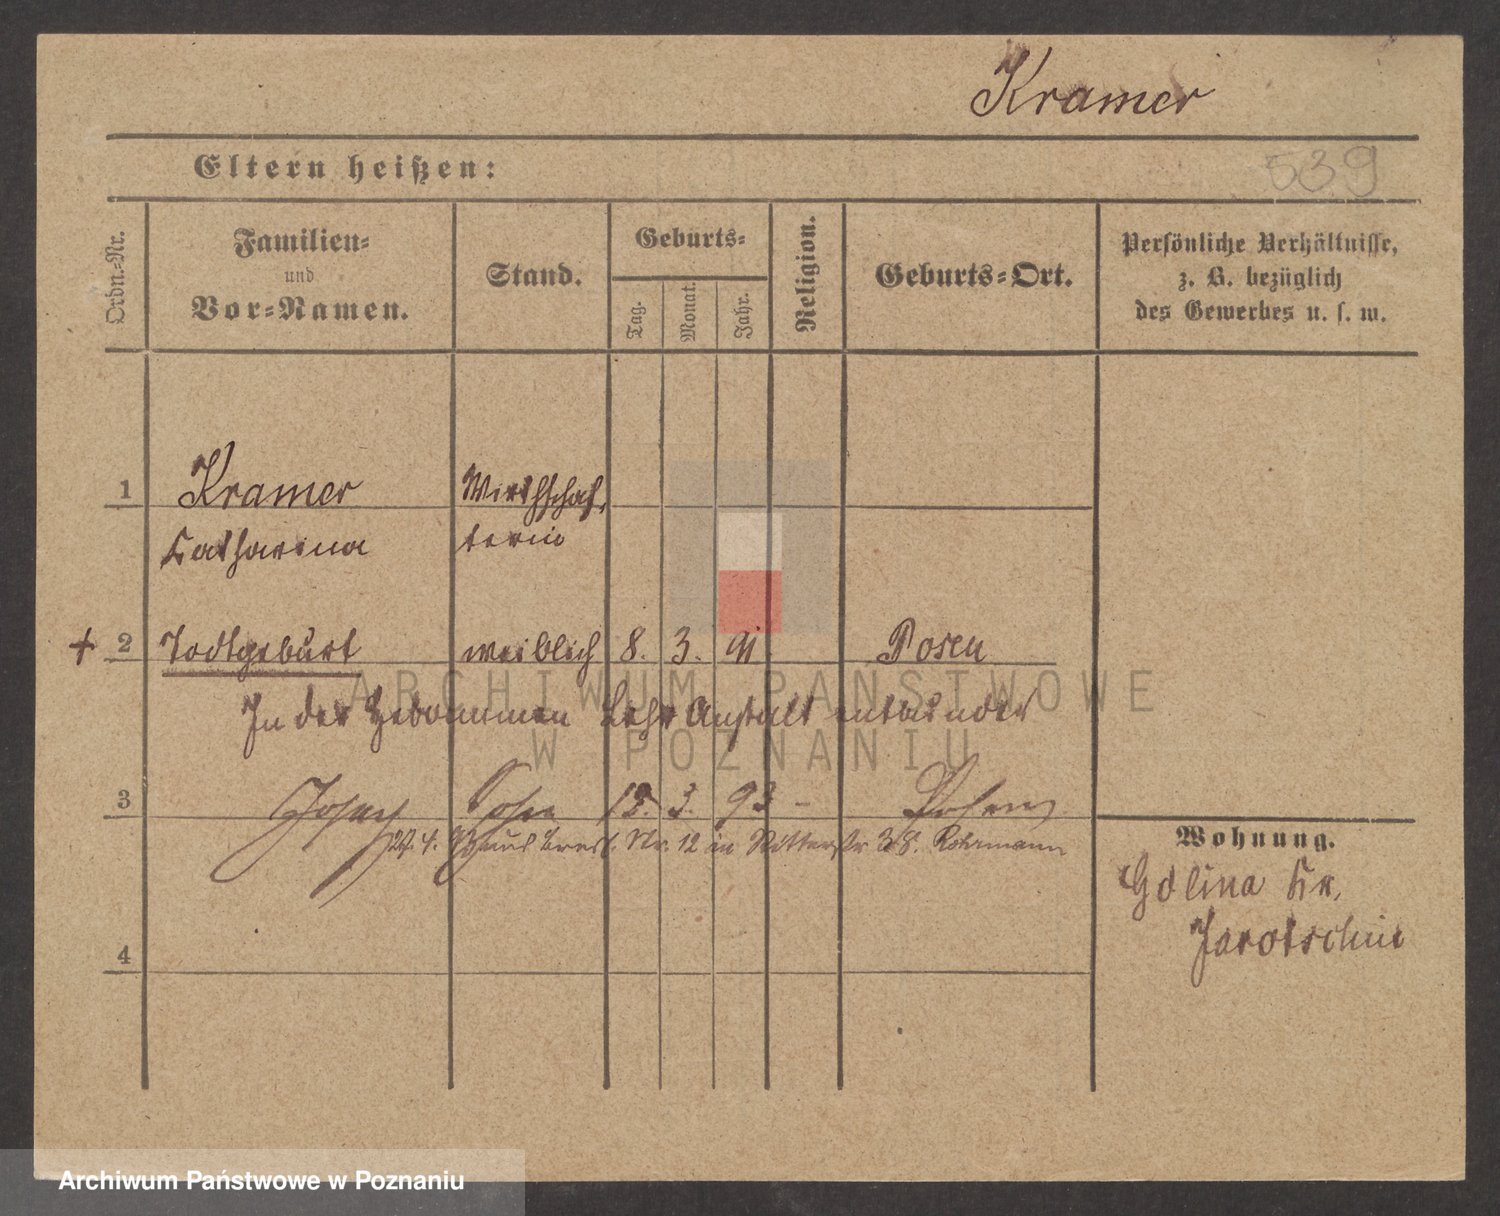 Kramer
Eltern heißen:
539
Ordn.-Nr.
Familien-
und
Vor-Namen.
Stand.
Geburts-
Tag.
Monat.
Jahr.
Religion.
Geburts-Ort.
Persönliche Verhältnisse,
z. B. bezüglich
des Gewerbes u. s. w.
1 Kramer Wirthschaf
Catharina terin
+ 2 Todtgeburt weiblich 8. 3. 91 Posen
In der Hebammen Lehr Anstalt entbunden
3 Josef Sohn 12. 3. 93 - Posen
27. 4. Nr. 12 in Ritterstr 38. Rohrmann
Wohnung.
Golina Kr.
Jarotschin
4
ARCHIWUM PAŃSTWOWE
W POZNANIU
Archiwum Państwowe w Poznaniu